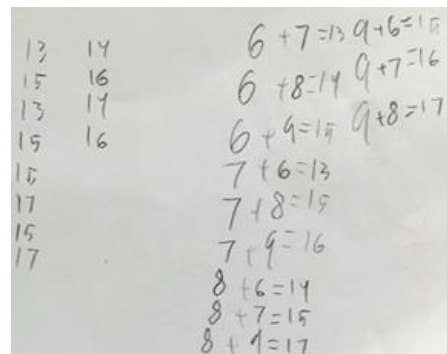 13 14
15 16
13 14
15 16
15
17
15
17
6 + 7 = 13
6 + 8 = 14
6 + 9 = 15
7 + 6 = 13
7 + 8 = 15
7 + 9 = 16
8 + 6 = 14
8 + 7 = 15
8 + 9 = 17
9 + 6 = 15
9 + 7 = 16
9 + 8 = 17